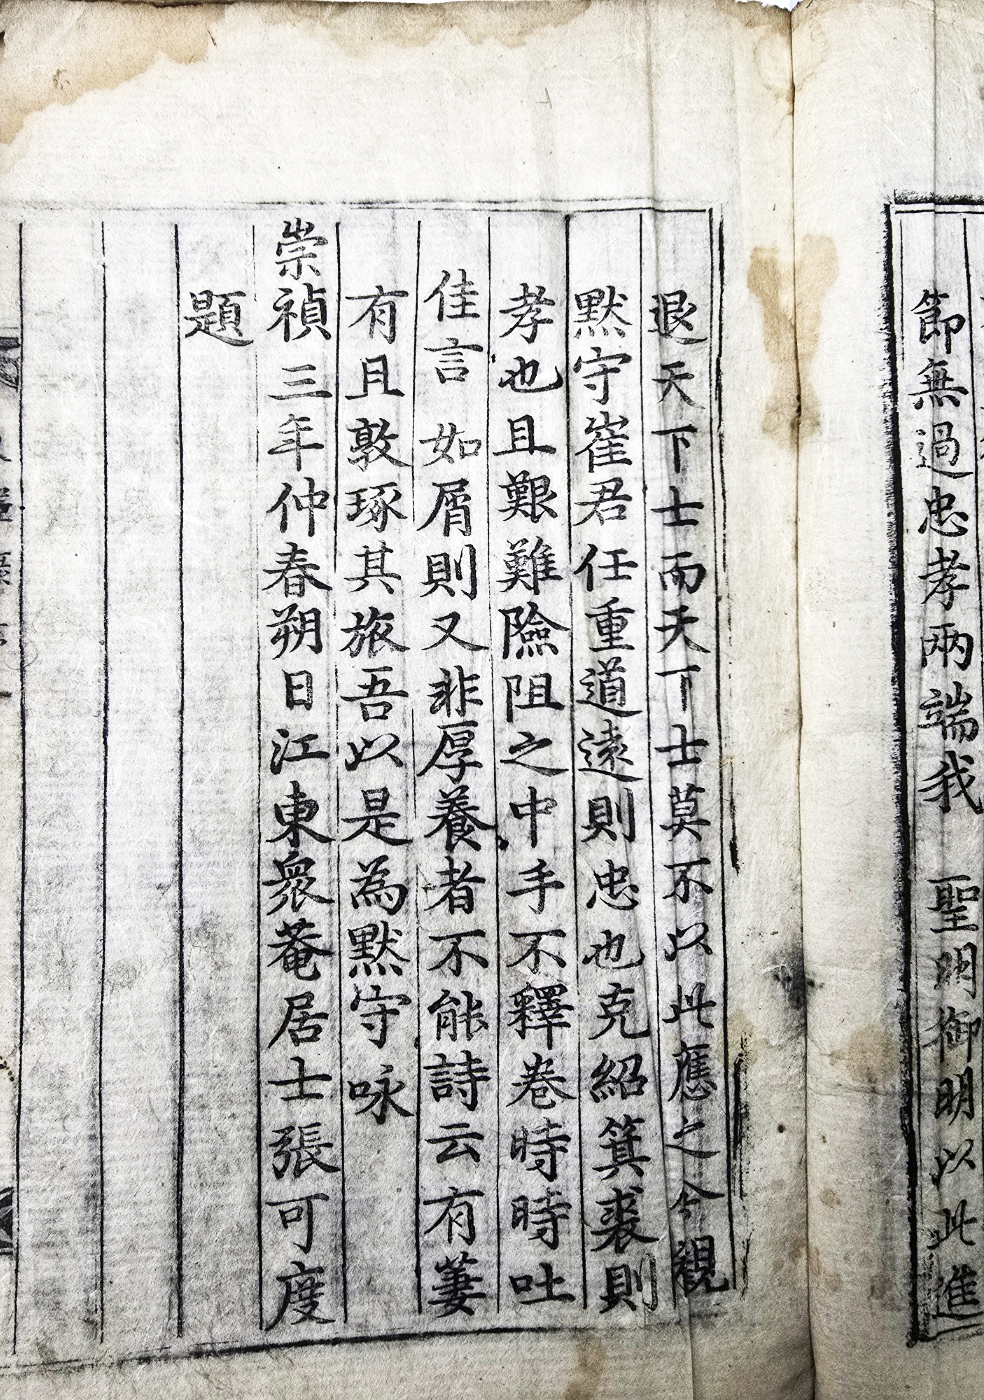 節無過忠孝兩端我 聖明御明以此進
退天下士而天下士莫不以此應之今觀
默守崔君任重道遠則忠也克紹箕裘則
孝也且艱難險阻之中手不釋卷時時吐
佳言如屑則又非厚養者不能詩云有萋
有且敦琢其旅吾以是為默守咏
崇禎三年仲春朔日江東衆菴居士張可度
題